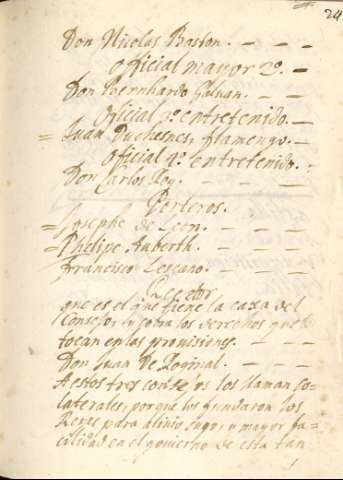 24
Don Nicolas Baston. - - -
Oficial mayor 2º. -
Don Bernhardo Galuan. - - -
Oficial 3º entretenido. -
= Juan Duchesnes, flamengo. - -
Oficial 4º entretenido. -
Don Carlos Roy. - - -
Porteros.
= Josephe de Leon. - - -
= Phelipe Auberth. - - -
Francisco Lescano. - - -
que es el que tiene la caxa del
Consejo, y cobra los derechos que le
tocan en las prouisiones. - - -
Don Juan de Roginal. - - -
A estos tres consejos los llaman Co-
laterales, porque los fundaron los
Reyes para aliuio suyo, y mayor fa-
cilidad en el gouierno de esta tan